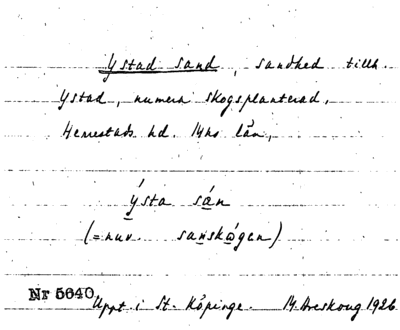 Ystad sand, sandhed tillh.
Ystad, numera skogsplanterad,
Herrestads hd. Mhs län,
ýsta sán
(= nuv. sanskógen)
Nr 5640 Uppt i St. Köpinge. M. Areskoug 1926